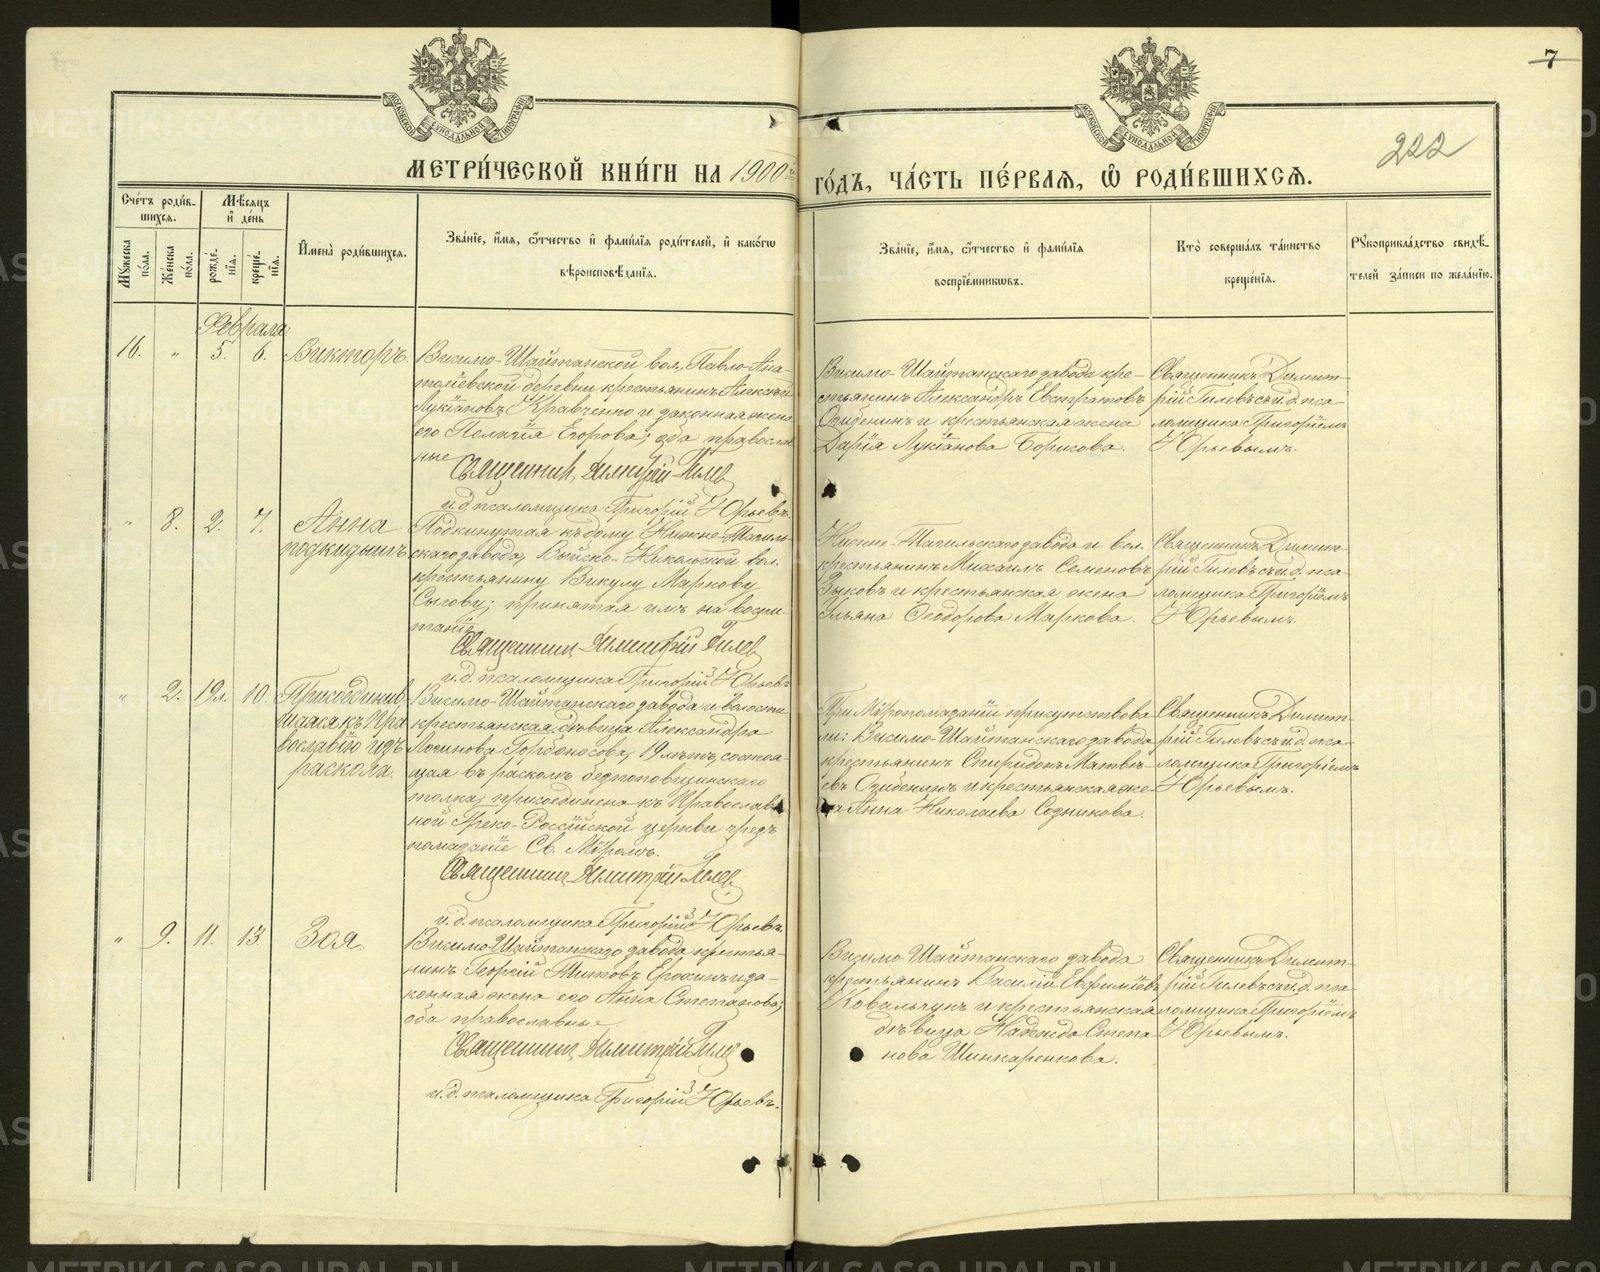 7
222
МОСКОВСКОЙ СѴНОДАЛЬНОЙ ТИПОГРАФІИ
МОСКОВСКОЙ СѴНОДАЛЬНОЙ ТИПОГРАФІИ
МЕТРИ́ЧЕСКОЙ КНИ́ГИ НА 1900й
ГО́ДЪ, ЧА́СТЬ ПЕ́РВАѦ, Ѡ РОДИ́ВШИХСѦ.
Сче́тъ роди́в-
шихся.
Мѣ́сяцъ
и де́нь
Му́жеска по́ла.
Же́нска по́ла.
рожде́-нїя.
креще́-нїя.
Имена̀ роди́вшихся.
Зва́нїе, и́мя, ѻ́тчество и фами́лїя роди́телей, и како́гѡ
вѣроисповѣ́данїя.
Зва́нїе, и́мя, ѻ́тчество и фами́лїя
воспрїе́мникѡвъ.
Кто̀ соверша́лъ та́инство
креще́нїя.
Рукоприкла́дство свидѣ́-
телей за́писи по жела́нїю.
Февраля
16. " 5. 6. Викторъ.
Висимо-Шайтанской вол., Павло-Ана-
тольевской деревни, крестьянинъ Алексѣй
Лукіановъ Кравченко и законная жена
его Пелагія Егорова; оба православ
ные
Священникъ Димитрій Гилев
и.д. псаломщика Григорій Юрьевъ.
Висимо-Шайтанскаго завода кре-
стьянинъ Александръ Евстратовъ
Ошбенинъ и крестьянская жена
Дарія Лукіанова Борисова.
Священникъ Димит-
рій Гилевъ съ и.д. пса-
ломщика Григоріемъ
Юрьевымъ.
" 8. 2. 7. Анна
подкидышъ
Подкинутая къ дому Нижне-Тагиль-
скаго завода, Выйско-Никольской вол.
крестьянину Викулу Маркову
Сысову; принятая имъ на воспи-
таніе
Священник Димитрій Гилев
и.д. псаломщика Григорій Юрьевъ
Нижне-Тагильскаго завода и вол.
крестьянинъ Михаилъ Семеновъ
Зыковъ и крестьянская жена
Ульяна Ѳеодорова Маркова.
Священникъ Димит-
рій Гилевъ съ и.д. пса-
ломщика Григоріемъ
Юрьевымъ.
" 2. 19л. 10. Присоединив
шаяся къ Пра
вославію изъ
раскола.
Висимо-Шайтанскаго завода и волости
крестьянская дѣвица Александра
Логинова Гордоносова, 19 лѣтъ, состоя-
щая въ расколѣ безпоповщинскаго
толка, присоединена къ Православ
ной Греко-Россійской церкви чрезъ
помазаніе Св. Мѵромъ.
Священник Димитрій Гилев
и.д. псаломщика Григорій Юрьевъ
При Мѵропомазаніи присутствова
ли: Висимо-Шайтанскаго завода
крестьянинъ Спиридонъ Матвѣ-
евъ Ошбенинъ и крестьянская же-
на Анна Николаева Садникова.
Священникъ Димит-
рій Гилевъ съ и.д. пса-
ломщика Григоріемъ
Юрьевымъ.
" 9. 11. 13. Зоя
Висимо-Шайтанскаго завода крестья-
нинъ Георгій Титовъ Ерохинъ и за-
конная жена его Анна Степанова;
оба православные
Священник Димитрій Гилев
и.д. псаломщика Григорій Юрьевъ.
Висимо-Шайтанскаго завода
крестьянинъ Василій Евфиміевъ
Ковальчукъ и крестьянская
дѣвица Надежда Степа
нова Шинкаренкова.
Священникъ Димит-
рій Гилевъ съ и.д. пса-
ломщика Григоріемъ
Юрьевымъ.
METRIKI.GASO-URAL.RU